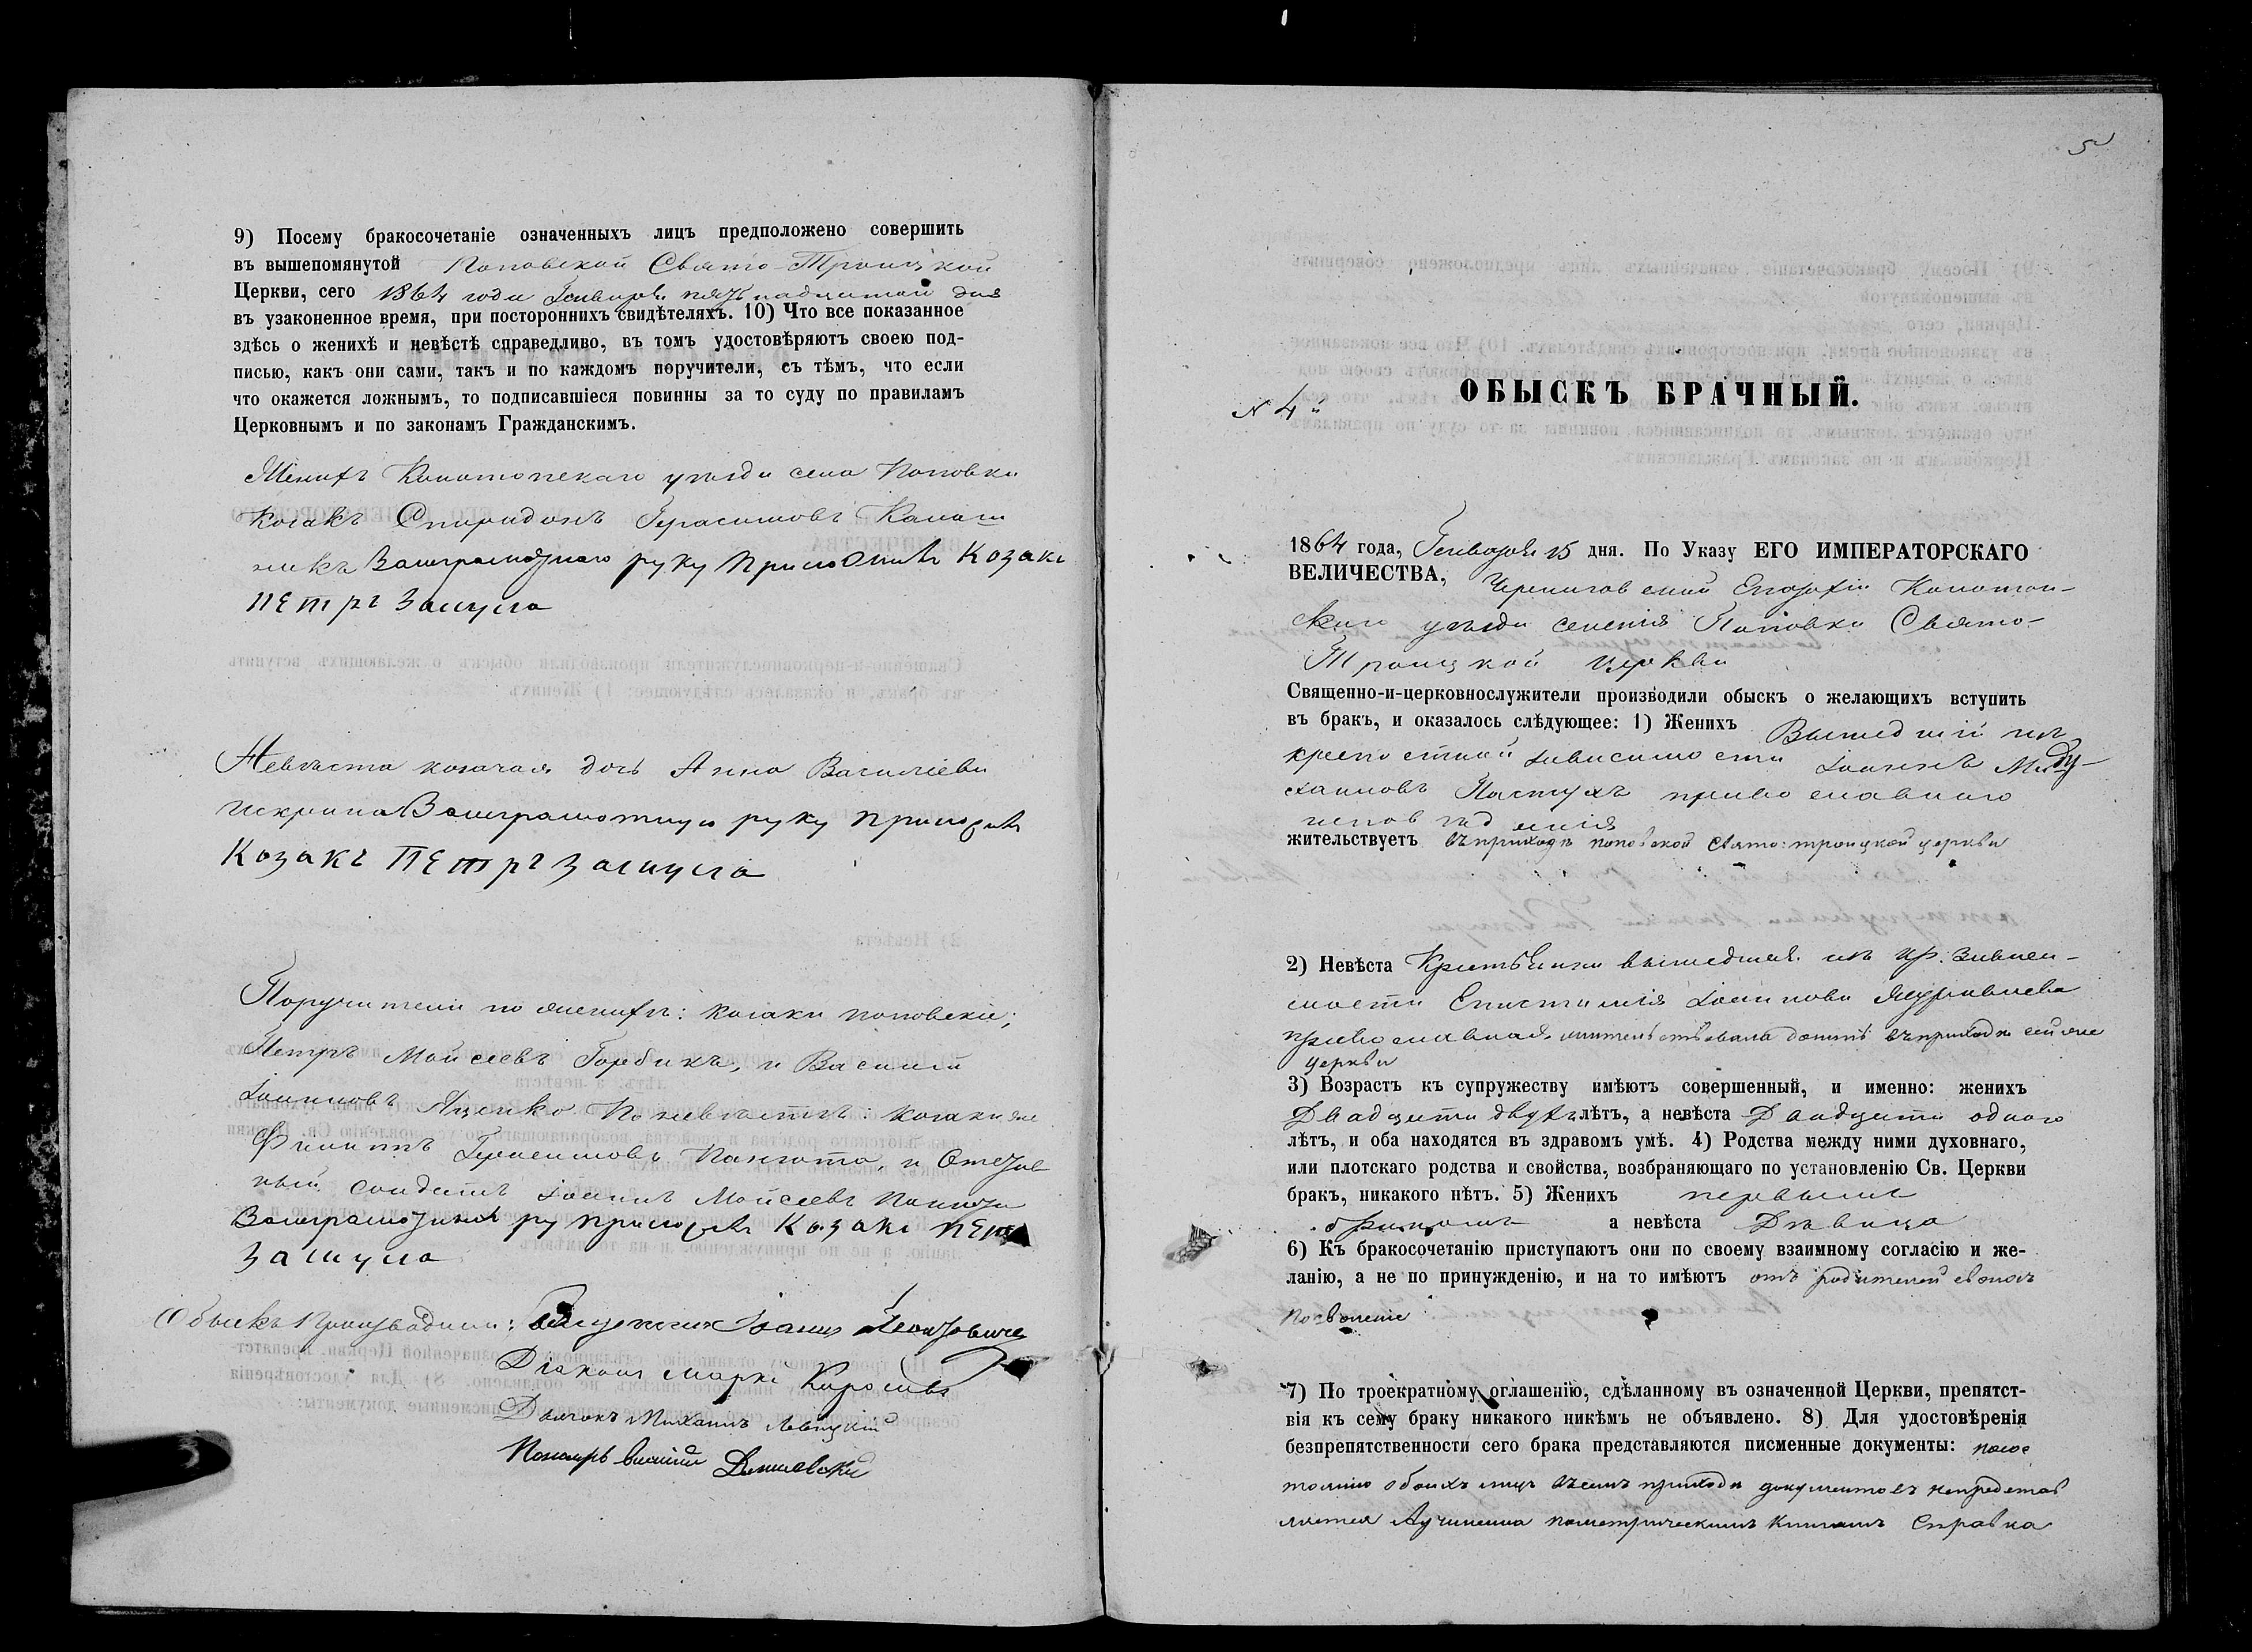 9) Посему бракосочетаніе означенныхъ лицъ предположено совершить
въ вышепомянутой Поповской Свято-Троицкой
Церкви, сего 1864 года Генваря пятнадцатаго дня
въ узаконенное время, при постороннихъ свидѣтеляхъ. 10) Что все показанное
здѣсь о женихѣ и невѣстѣ справедливо, въ томъ удостовѣряютъ своею под-
писью, какъ они сами, такъ и по каждомъ поручители, съ тѣмъ, что если
что окажется ложнымъ, то подписавшіеся повинны за то суду по правиламъ
Церковнымъ и по законамъ Гражданскимъ.
Женихъ Конотопскаго уѣзда села Поповки
Козакъ Спиридонъ Герасимовъ Калаш
никъ Заниграмотнаго руку приложилъ Козакъ
Петръ
Невѣста козачая дочь Анна Василіева
Искрина руку приложилъ
Козакъ Петръ
Поручители по женихѣ: козаки поповскіе;
Петръ Мойсеевъ Горбикъ, и Василій
Іоанновъ Яценко По невѣстѣ: козаки же
Филиппъ Герасимовъ и Отстав
ный солдатъ Іоаннъ Мойсеевъ
Козакъ
Обыскъ производили: Іоаннъ
Діаконъ Марко
Дьячокъ Михаилъ Левицкій
Пономарь
5
ОБЫСКЪ БРАЧНЫЙ.
N 4й
1864 года, Генваря 15 дня. По Указу ЕГО ИМПЕРАТОРСКАГО
ВЕЛИЧЕСТВА, Черниговской Епархіи Конотоп-
скаго уѣзда селенія Поповки Свято-
Троицкой церкви
Священно-и-церковнослужители производили обыскъ о желающихъ вступить
въ бракъ, и оказалось слѣдующее: 1) Женихъ Вышедшій изъ
крепостной зависимости Іоаннъ
Пастухъ православнаго
исповѣданія
жительствуетъ въ приходѣ поповской свято-троицкой церкви
2) Невѣста Крестьянка вышедшая изъ кр. зависи-
мости Епистимія Іоаннова Журавлева
православная, жительствовала донынѣ въ приходѣ сей же
церкви
3) Возрастъ къ супружеству имѣютъ совершенный, и именно: женихъ
Двадцати двухъ лѣтъ, а невѣста Двадцати одного
лѣтъ, и оба находятся въ здравомъ умѣ. 4) Родства между ними духовнаго,
или плотскаго родства и свойства, возбраняющаго по установленію Св. Церкви
бракъ, никакого нѣтъ. 5) Женихъ первымъ
бракомъ а невѣста Дѣвица
6) Къ бракосочетанію приступаютъ они по своему взаимному согласію и же-
ланію, а не по принужденію, и на то имѣютъ отъ родителей своихъ
позволеніе
7) По троекратному оглашенію, сдѣланному въ означенной Церкви, препятст-
вія къ сему браку никакого никѣмъ не объявлено. 8) Для удостовѣренія
безпрепятственности сего брака представляются писменные документы: по сос
тоянію обоихъ лицъ въ семъ приходѣ документовъ непредстав
ляется Аучинена пометрическимъ книгамъ Справка